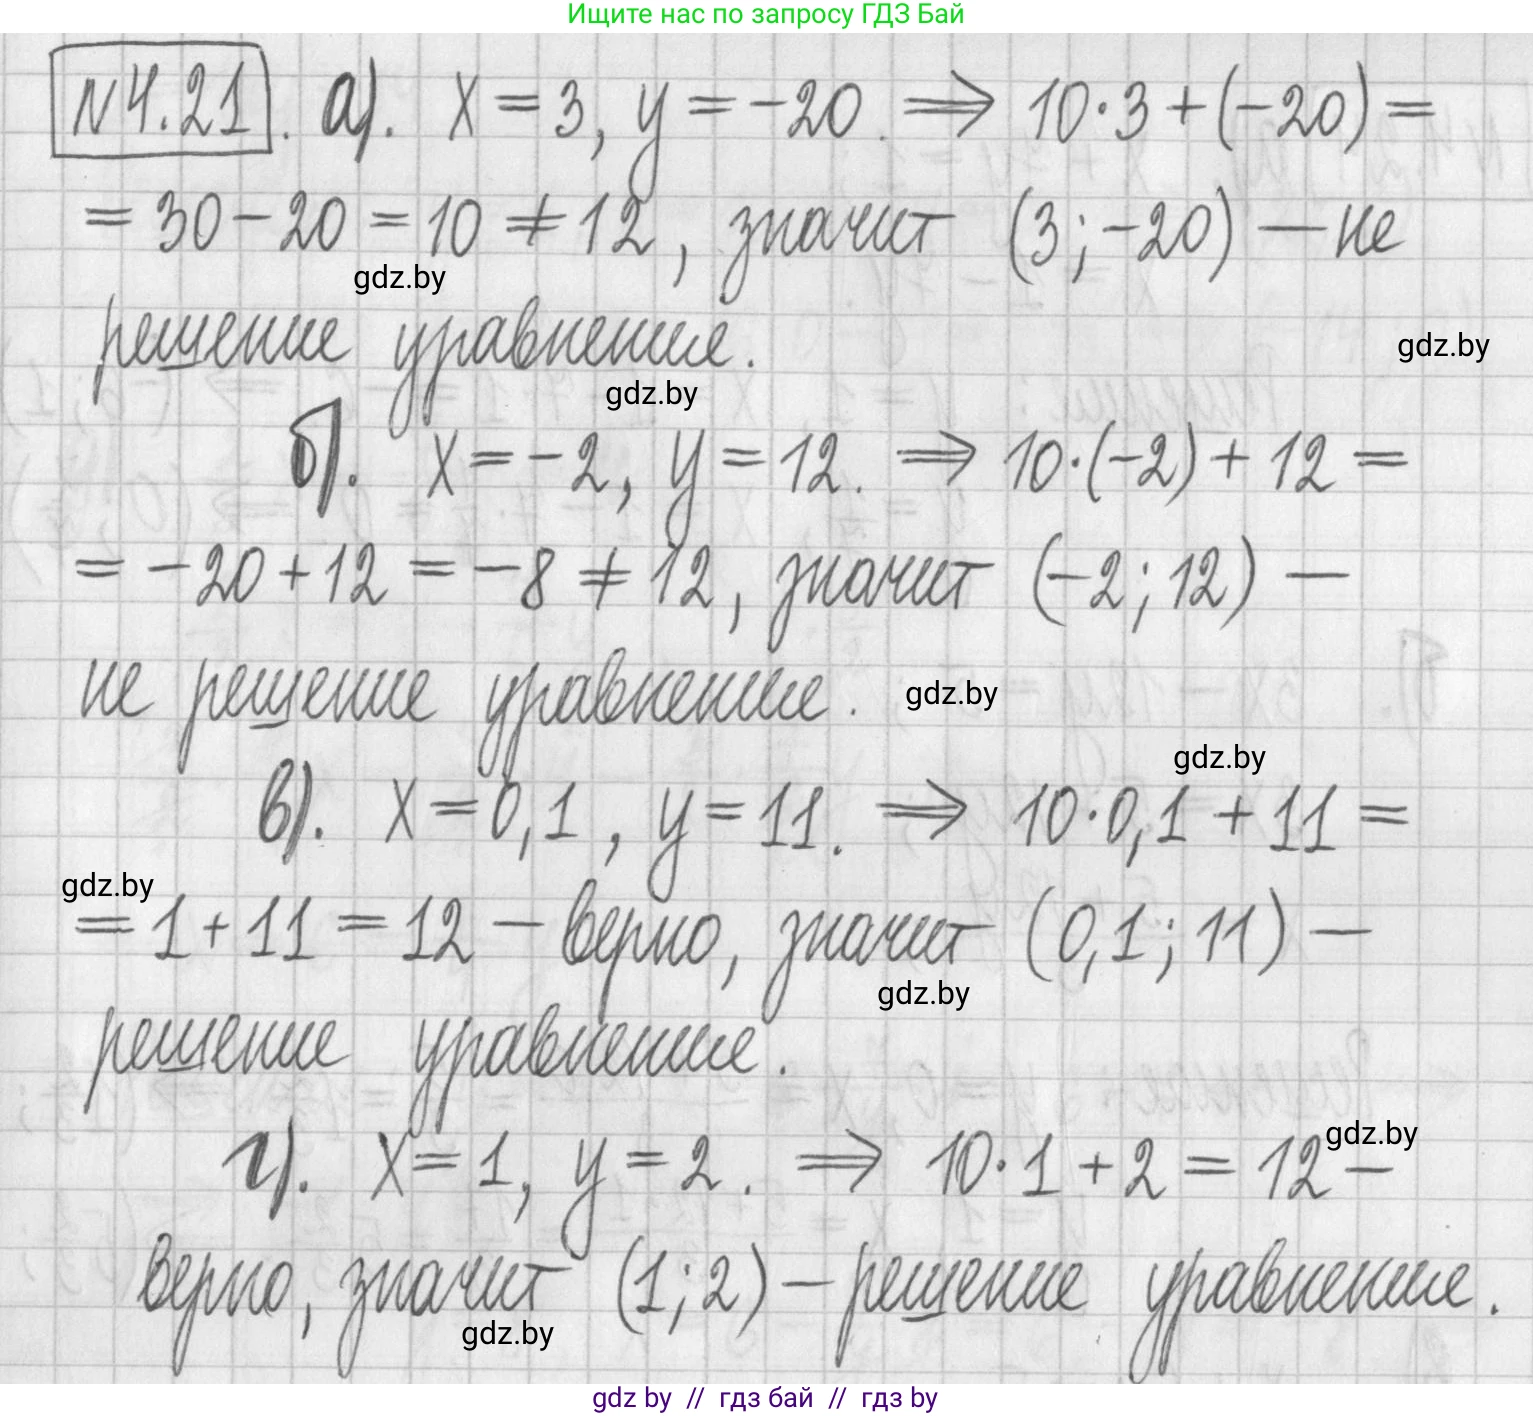 Ищите нас по запросу ГДЗ Бай
№4.21. а). x = 3, y = -20. ⟹ 10·3 + (-20) =
= 30 - 20 = 10 ≠ 12, значит (3; -20) — не
gdz.by
решение уравнение.
gdz.by
gdz.by
б). x = -2, y = 12. ⟹ 10·(-2) + 12 =
= -20 + 12 = -8 ≠ 12, значит (-2; 12) —
не решение уравнение.
gdz.by
gdz.by
в). x = 0,1, y = 11. ⟹ 10·0,1 + 11 =
gdz.by
= 1 + 11 = 12 — верно, значит (0,1; 11) —
gdz.by
решение уравнение.
г). x = 1, y = 2. ⟹ 10·1 + 2 = 12 —
gdz.by
верно, значит (1; 2) — решение уравнение.
gdz.by
gdz by // гдз бай // гдз by